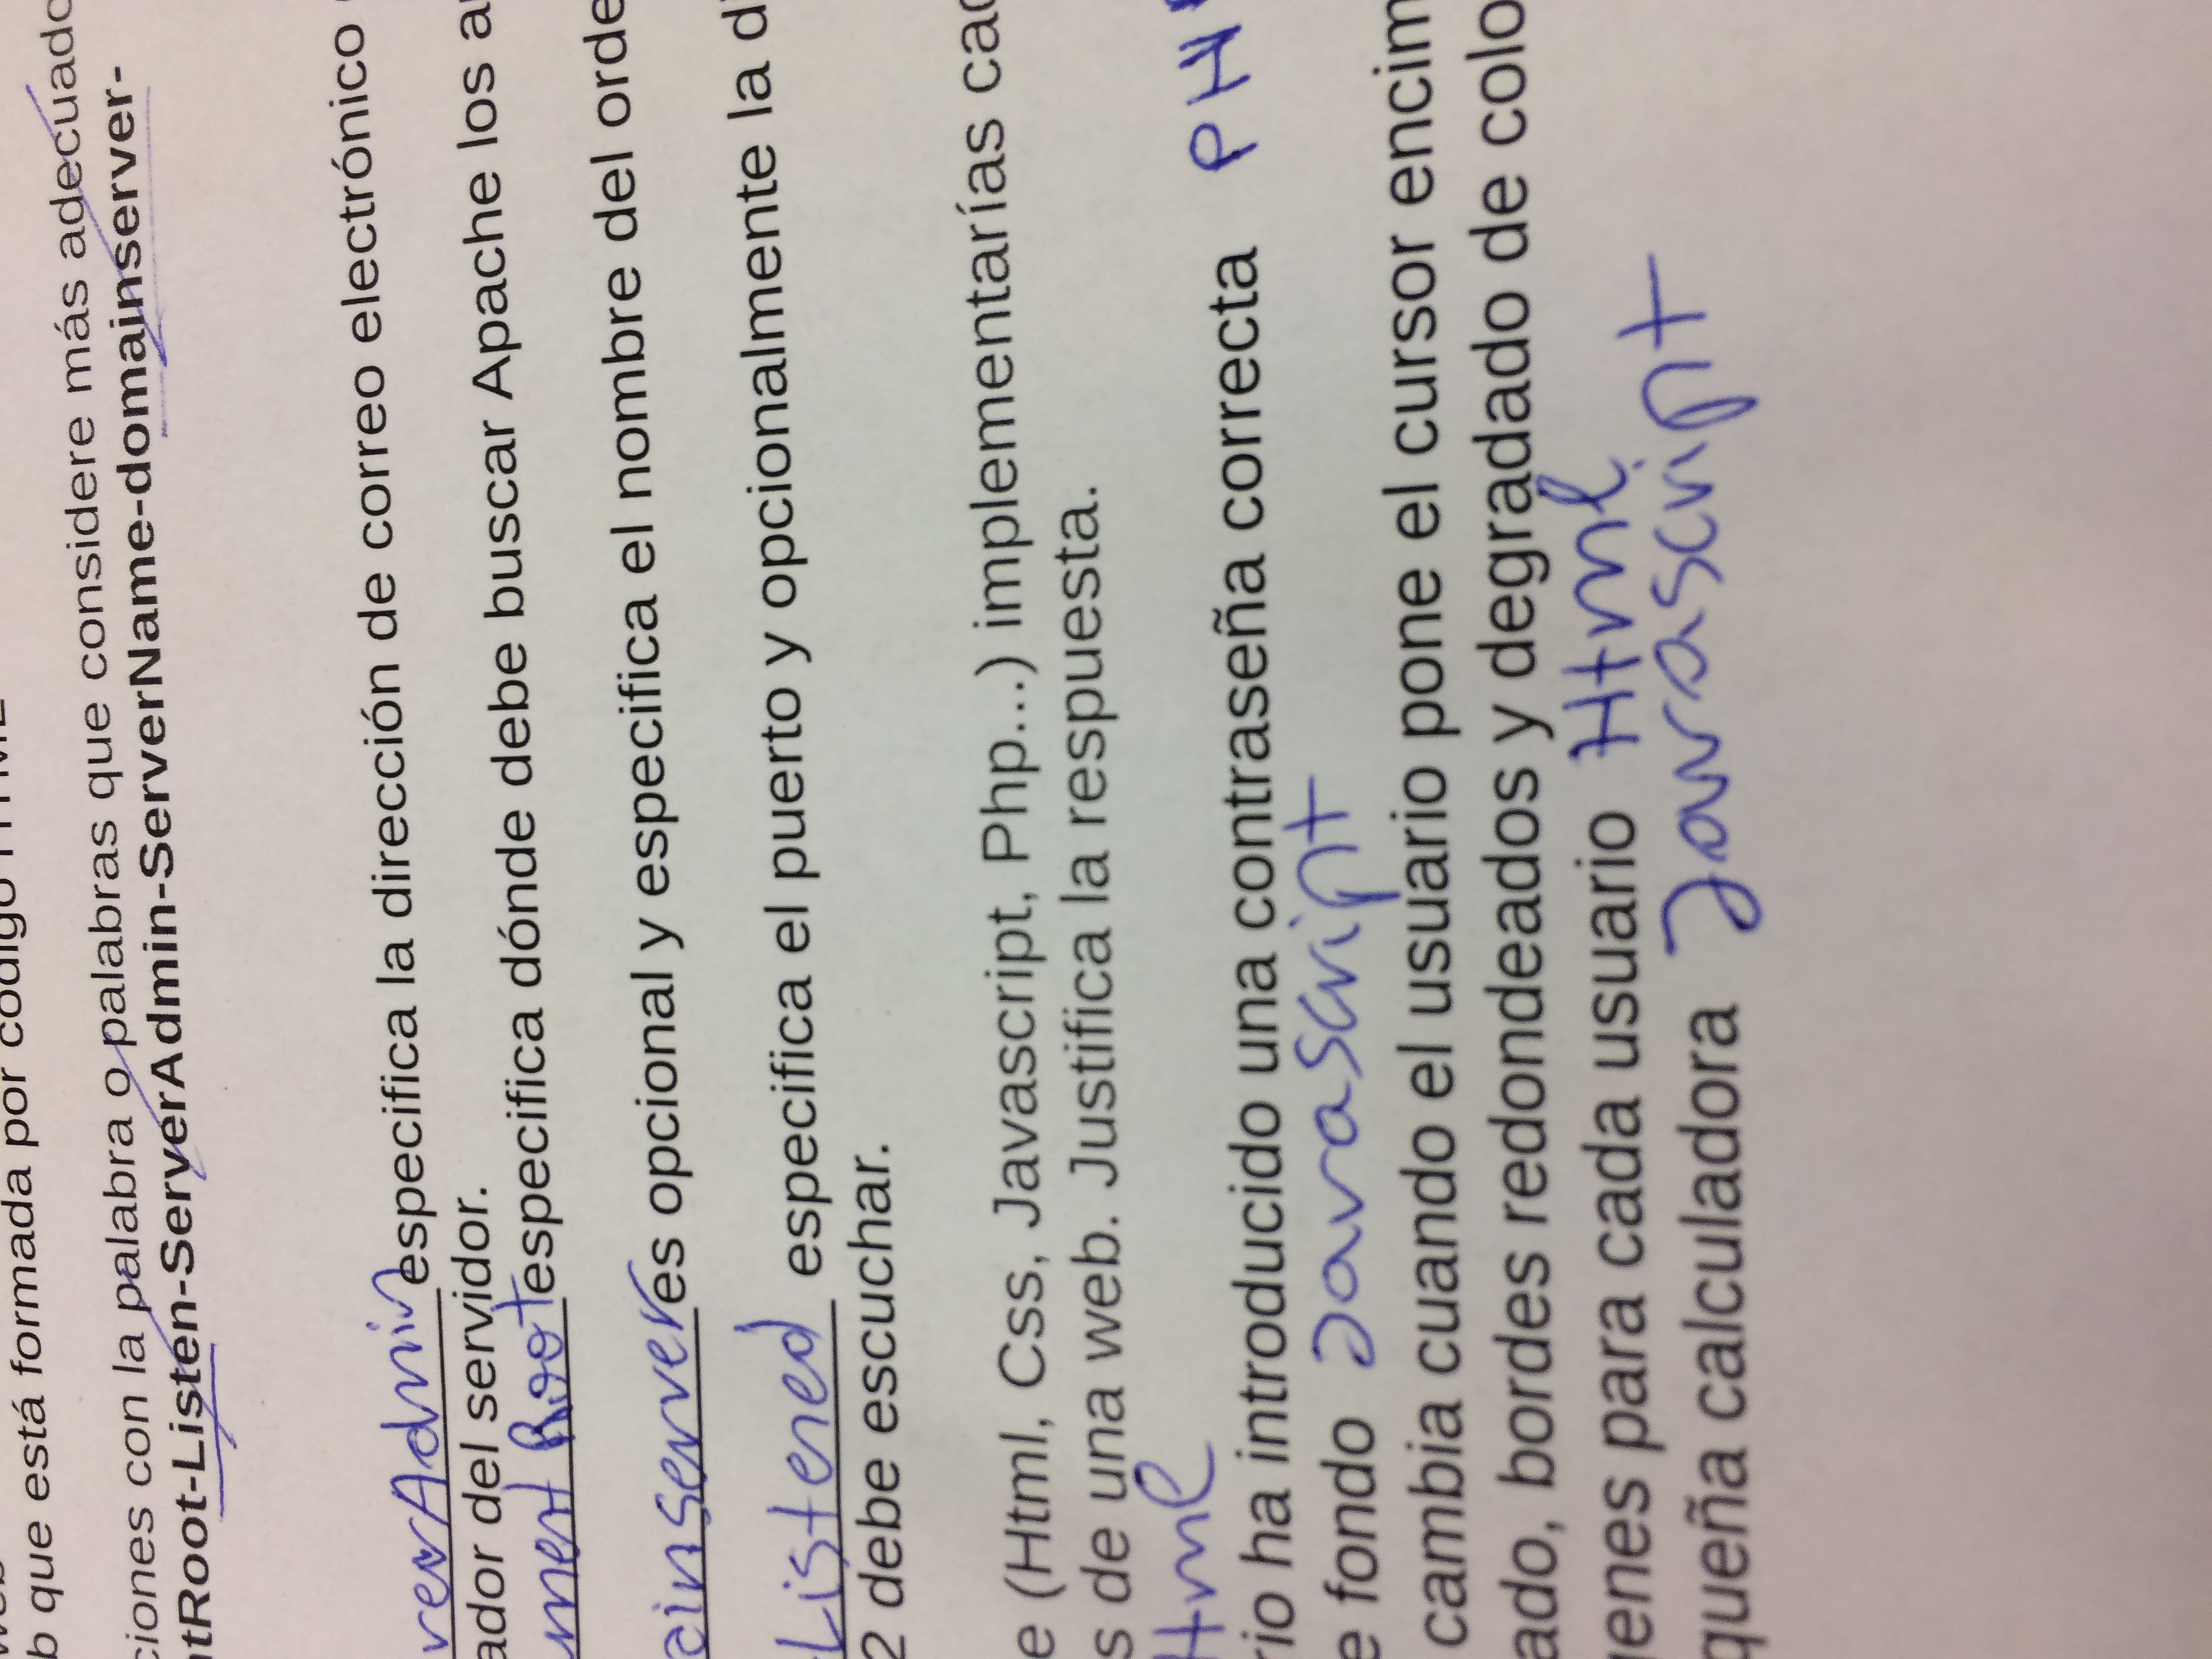 b que está formada por código HTML
ciones con la palabra o palabras que considere más adecuado
ntRoot-Listen-ServerAdmin-ServerName-domainserver-
verAdmin especifica la dirección de correo electrónico
ador del servidor.
ument Root especifica dónde debe buscar Apache los a
ainserver es opcional y especifica el nombre del orde
Listened especifica el puerto y opcionalmente la di
2 debe escuchar.
e (Html, Css, Javascript, Php...) implementarías cad
s de una web. Justifica la respuesta.
Html
rio ha introducido una contraseña correcta PHP
e fondo Javascript
cambia cuando el usuario pone el cursor encim
ado, bordes redondeados y degradado de colo
genes para cada usuario Html
queña calculadora Javascript